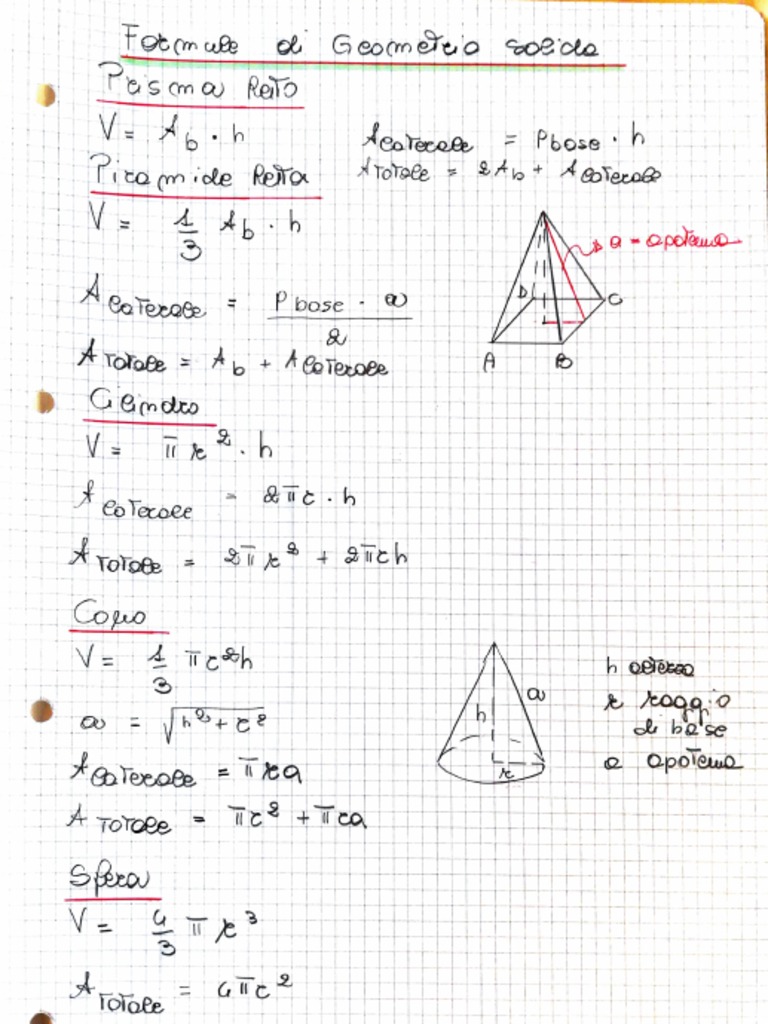 Formule di Geometria solida
Prisma Retto
V = Ab · h
A laterale = Pbase · h
A totale = 2Ab + A laterale
Piramide Retta
V = 1/3 Ab · h
a = apotema
D C
A B
A laterale = Pbase · a / 2
A totale = Ab + A laterale
Cilindro
V = πr² · h
A laterale = 2πr · h
A totale = 2πr² + 2πrh
Cono
V = 1/3 πr²h
a = √h² + r²
A laterale = πra
A totale = πr² + πra
h a
r
h altezza
r raggio
di base
a apotema
Sfera
V = 4/3 πr³
A totale = 4πr²